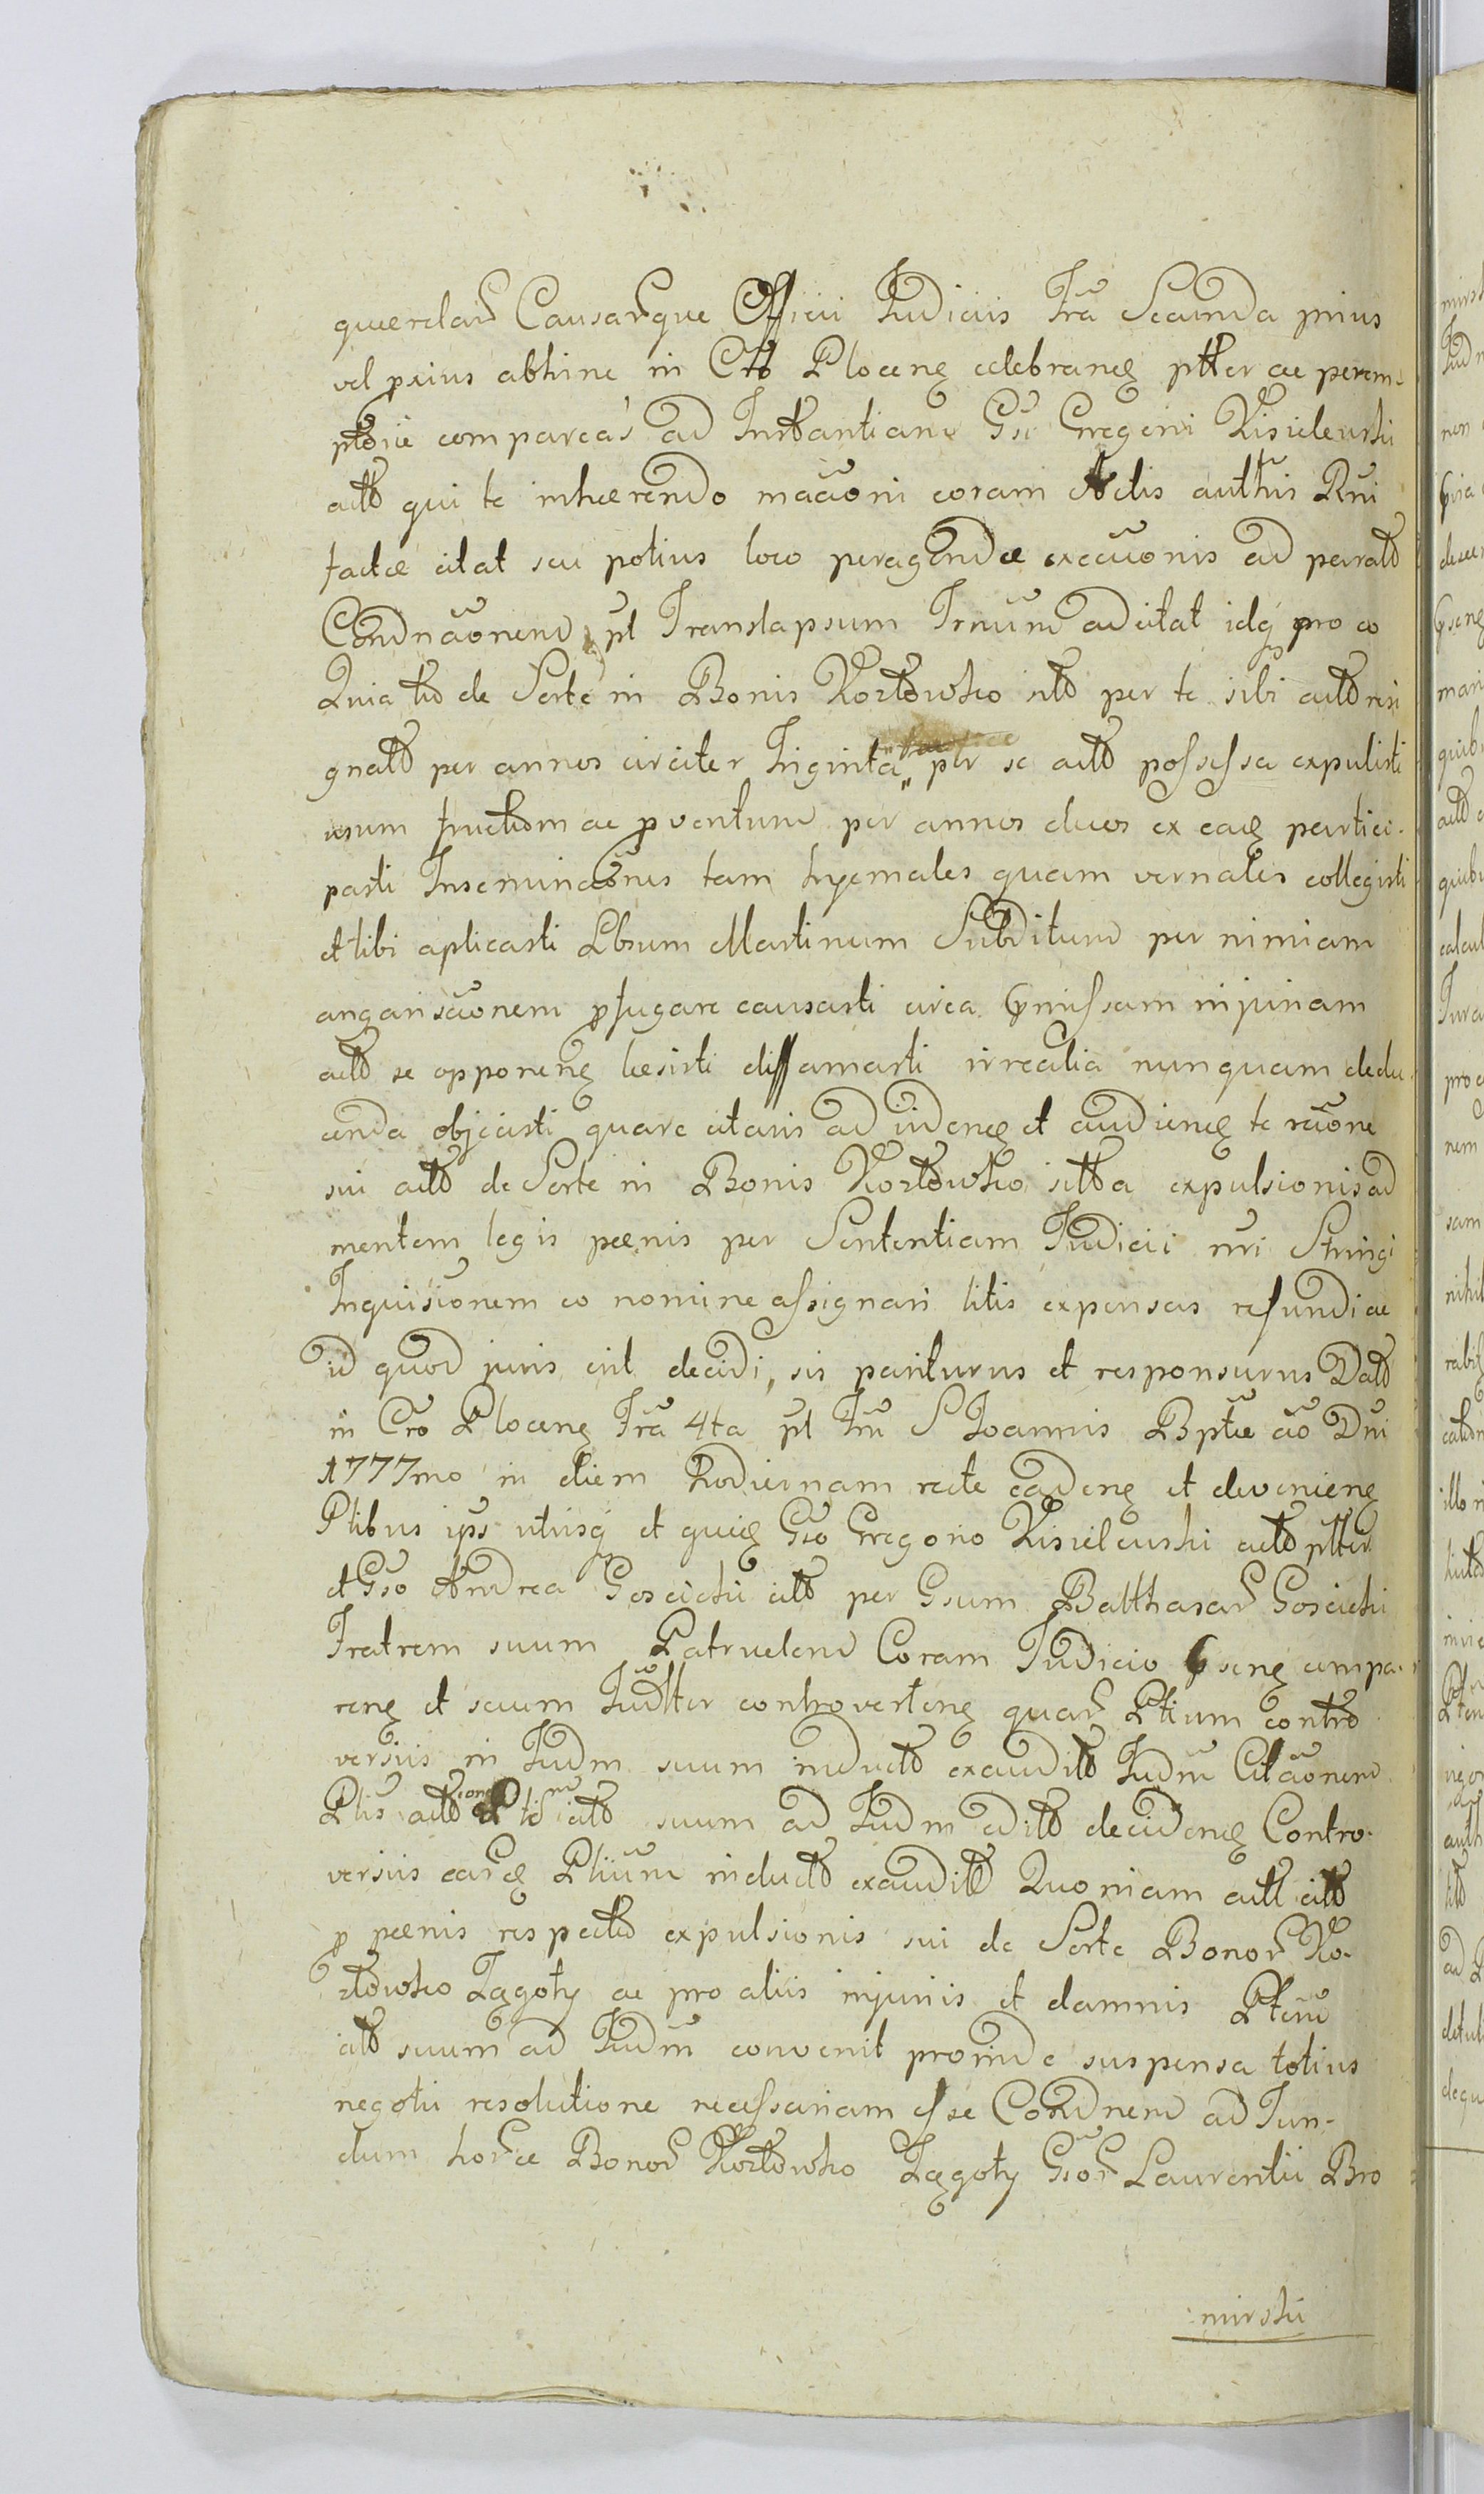 querelar Causarque Officii Judiciis Fra Secunda prius
vel pxius abhinc in Ctto Plocens celebrans ptter ac perem-
ptorie compareas ad Instantiam Gsi Gregorii Kisielewski
actt qui te inhaerendo maōoni coram Actis authis Rni
factae citat seu potius loco peragendae execuōonis ad paratt
Condnaōonem pt Translapsum Trnum adcitat idq pro eo
Quia tu de Sorte in Bonis Kozłowko sitt per te sibi actt resi
gnatt per annos circiter Triginta per se actt possessa expulisti
usum fructum ac pventum per annos duos ex eads partici-
pasti Inseminaōones tam hyemales quam vernales collegisti
et tibi aplicasti Lbsum Martinum Subditum per nimiam
angarisaōonem pfugare causasti circa pmissam injuriam
actt se opponens laesisti diffamasti irrealia nunquam dedu-
cenda objecisti quare citaris ad videns et audiens te raōone
sui actt de Sorte in Bonis Kozłowko sitta expulsionis ad
mentem legis paenis per Sententiam Judicii nri Stringi
Inquisiōonem eo nomine assignari litis expensas refundi ac
id quod juris erit decidi, sis pariturus et responsurus Datt
in Cro Plocens Fra 4ta pt Fm S Joannis Bptae aō Dni
1777mo in diem hodiernam recte cadens et deveniens
Ptibus ips utrisq et quids Gso Gregorio Kisielewski actt ptter
et Gso Andrea Goscicki citt per Gsum Balthasar Goscicki
Fratrem suum Patruelem Coram Judicio psens compa-
rens et secum Judtter controvertens quar Ptium contro
versiis in Judm suum inductt exauditt Judm Citaōonem
Ptis actt citt suum ad Judm editt decidens Contro-
versiis ears Ptium inductt exauditt Quoniam actt citt
p paenis respectu expulsionis sui de Sorte Bonor Ko-
złowko Łęgoty ac pro aliis injuriis et damnis Ptem
citt suum ad Judm convenit proinde suspensa totius
negotii resolutione necessariam esse Condnem ad Fun-
dum horce Bonor Kozłowko Łęgoty Gsor Laurentii Bro
mirski